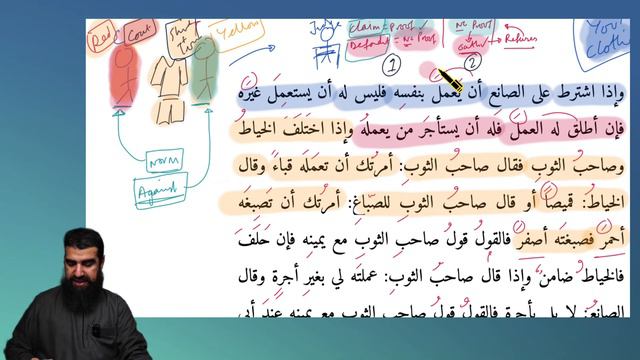 Red
Coat
Shirt +
Yellow
Judge
Claim = Proof
Defend = No Proof
No Proof
Refuses
You
cloth
①
②
Norm
Against
وإذا اشترط على الصانع أن يَعْمَلَ بنفسِه فليس له أن يستعمِلَ غيرَه
فإن أطلق له العملَ فَلَه أن يستأجرَ مَن يعملُه وإذا اختَلَفَ الخياطُ
وصاحبُ الثوبِ فقال صاحبُ الثوبِ: أمرتُك أن تعمَلَه قباءً وقال
الخياطُ: قميصاً أو قال صاحبُ الثوبِ للصبّاغِ: أمرتُك أن تَصبِغَه
أحمرَ فصبغتَه أصفرَ فالقولُ قولُ صاحبِ الثوبِ مع يمينِه فإن حَلَفَ
فالخياطُ ضامنٌ وإذا قال صاحبُ الثوبِ: عملتَه لي بغيرِ أجرةٍ وقال
الصانعُ: لا بل بأجرةٍ فالقولُ قولُ صاحبِ الثوبِ مع يمينِه عندَ أبي